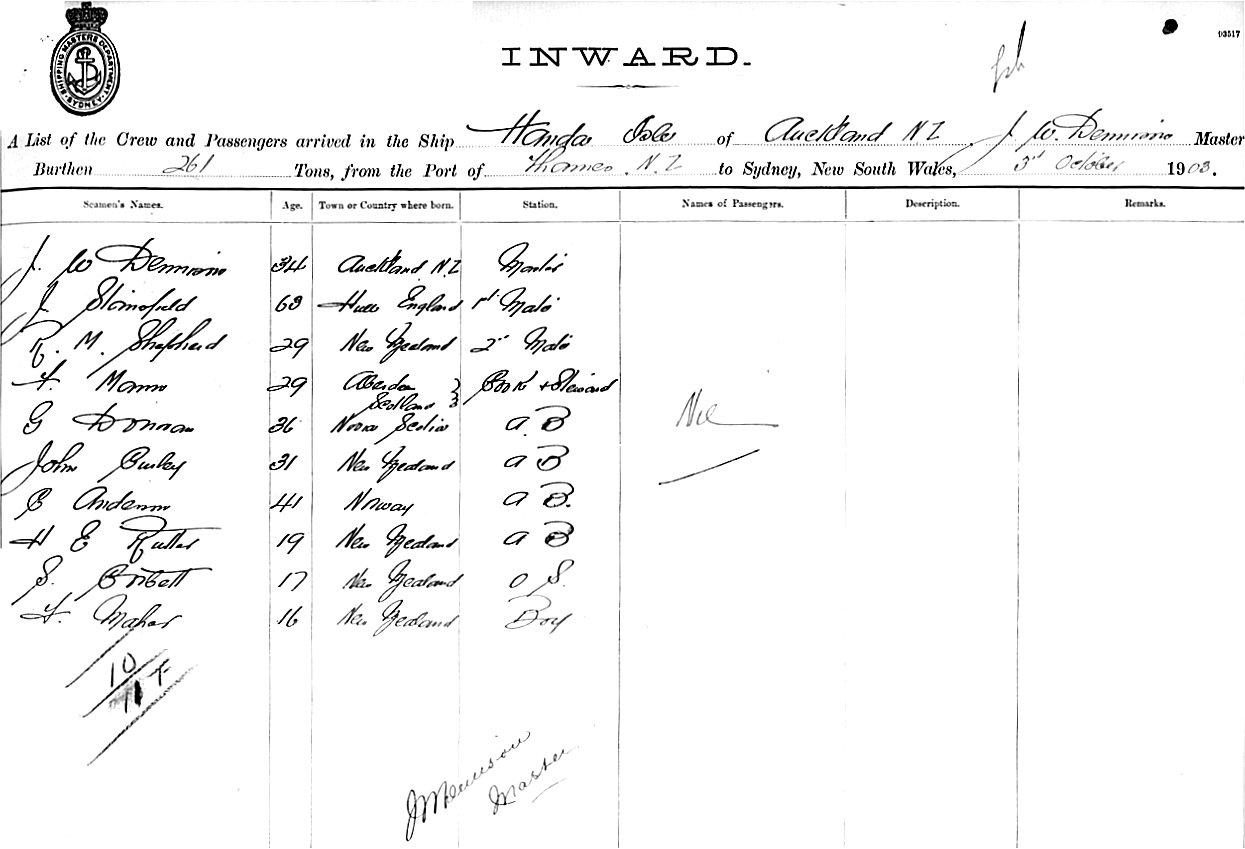 SHIPPING MASTERS DEPARTMENT SYDNEY
93517
INWARD.
A List of the Crew and Passengers arrived in the Ship Handa Isle of Auckland NZ J. W. Dennison Master
Burthen 261 Tons, from the Port of Thames N.Z to Sydney, New South Wales, 3rd October 1903.
Seamen's Names. Age. Town or Country where born. Station. Names of Passengers. Description. Remarks.
J. W Dennison 34 Auckland N.Z Master
J Stansfield 63 Hull England 1st Mate
R. M. Shepherd 29 New Zealand 2nd Mate
F. Mann 29 Aberdeen Scotland Cook + Steward
G Donovan 36 Nova Scotia A.B Nil
John Burley 31 New Zealand A B
C Anderson 41 Norway A B.
H E Rutter 19 New Zealand A B
S. Corbett 17 New Zealand O S.
F. Maher 16 New Zealand Boy
10
11
JW Dennison
Master